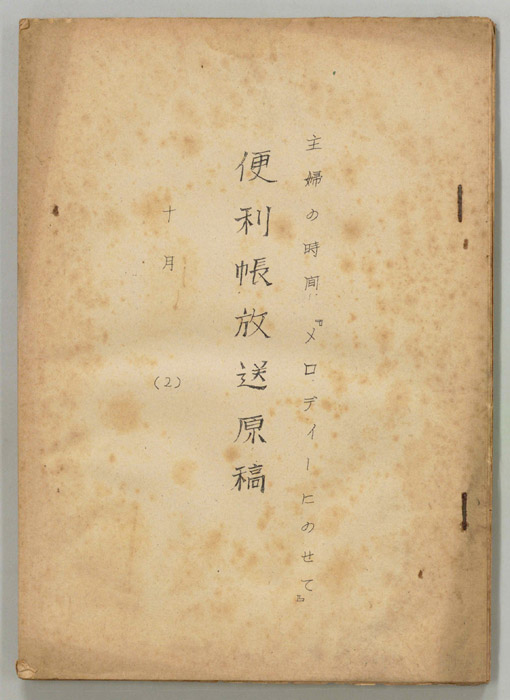 主婦の時間『メロディーにのせて』
便利帳放送原稿
十月　(2)